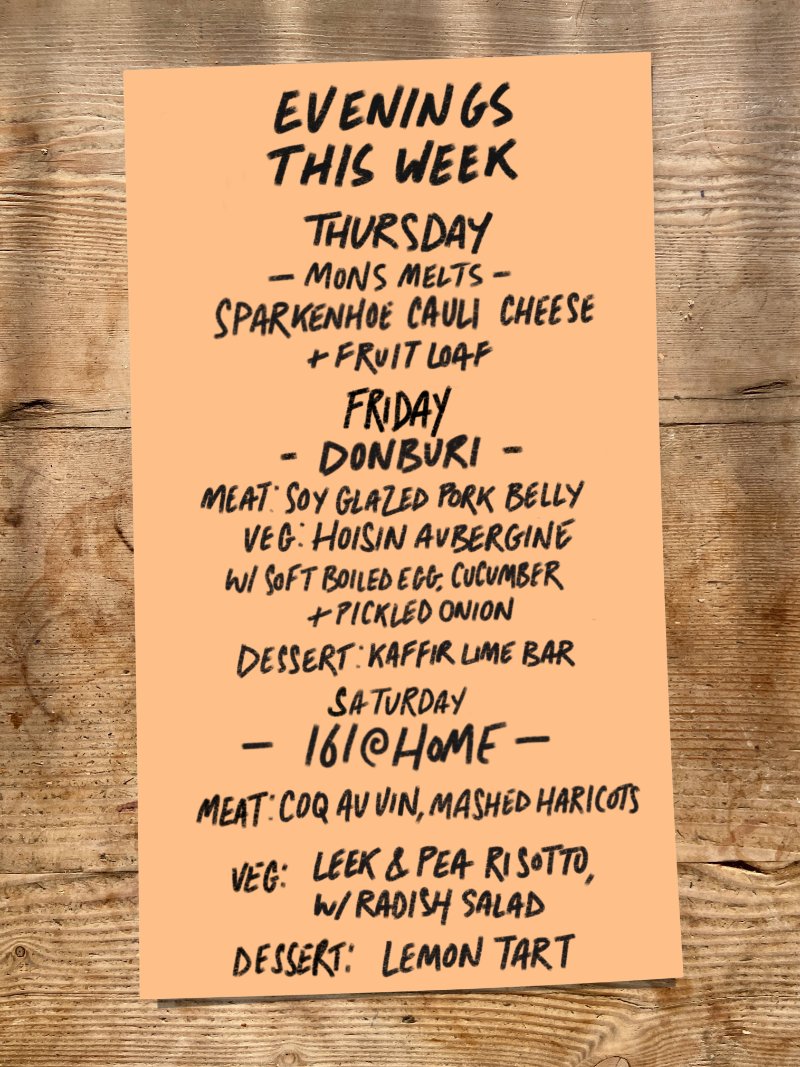 EVENINGS
THIS WEEK
THURSDAY
- MONS MELTS -
SPARKENHOE CAULI CHEESE
+ FRUIT LOAF
FRIDAY
- DONBURI -
MEAT: SOY GLAZED PORK BELLY
VEG: HOISIN AUBERGINE
W/ SOFT BOILED EGG, CUCUMBER
+ PICKLED ONION
DESSERT: KAFFIR LIME BAR
SATURDAY
- 161@HOME -
MEAT: COQ AU VIN, MASHED HARICOTS
VEG: LEEK & PEA RISOTTO,
W/ RADISH SALAD
DESSERT: LEMON TART